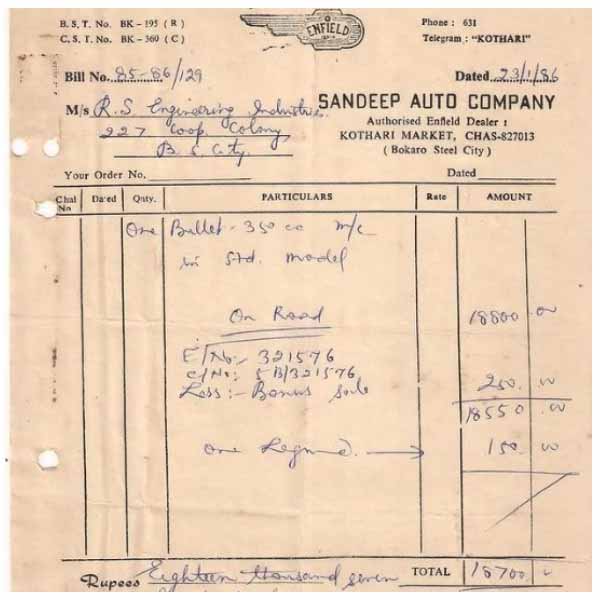 B. S. T. No. BK - 195 ( R )
C. S. T. No. BK - 360 ( C )
ENFIELD
Phone : 631
Telegram : "KOTHARI"
Bill No. 85-86/129
Dated 23/1/86
M/s R.S. Engineering Industries
227 Coop. Colony,
B. S. City.
SANDEEP AUTO COMPANY
Authorised Enfield Dealer :
KOTHARI MARKET, CHAS-827013
( Bokaro Steel City )
Your Order No.
Dated
Chal No Dated Qnty. PARTICULARS Rate AMOUNT
One Bullet - 350 cc M/c
in Std. model
On Road 18800 .00
E/No:- 321576
C/No:- 5B/321576
Less:- Bonus Sale 250 .00
18550 .00
One Legguard. → 150 .00
TOTAL 18700 .00
Rupees Eighteen thousand seven